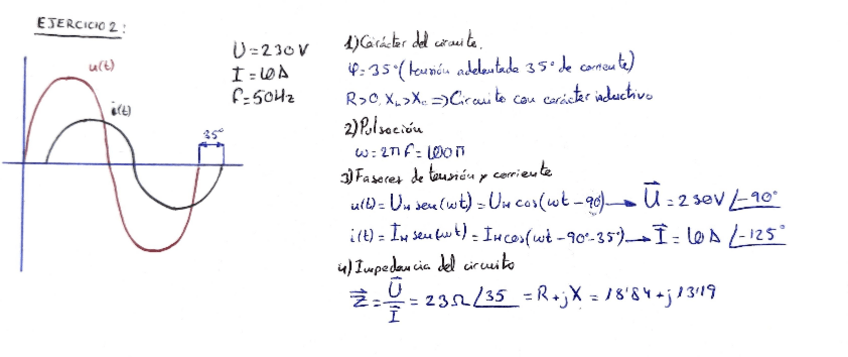 EJERCICIO 2:
u(t)
i(t)
35°
U=230V
I=10A
f=50Hz
1) Carácter del circuito.
φ=35° (tensión adelantada 35° de corriente)
R>0, XL>Xc => Circuito con carácter inductivo
2) Pulsación
ω=2πf=100π
3) Fasores de tensión y corriente
u(t)=UM sen(ωt)=UM cos(ωt-90) → U⃗ = 230V ∠-90°
i(t)=IM sen(ωt)=IM cos(ωt-90°-35°) → I⃗ = 10A ∠-125°
4) Impedancia del circuito
Z⃗ = U⃗/I⃗ = 23Ω ∠35 = R+jX = 18'84+j13'19